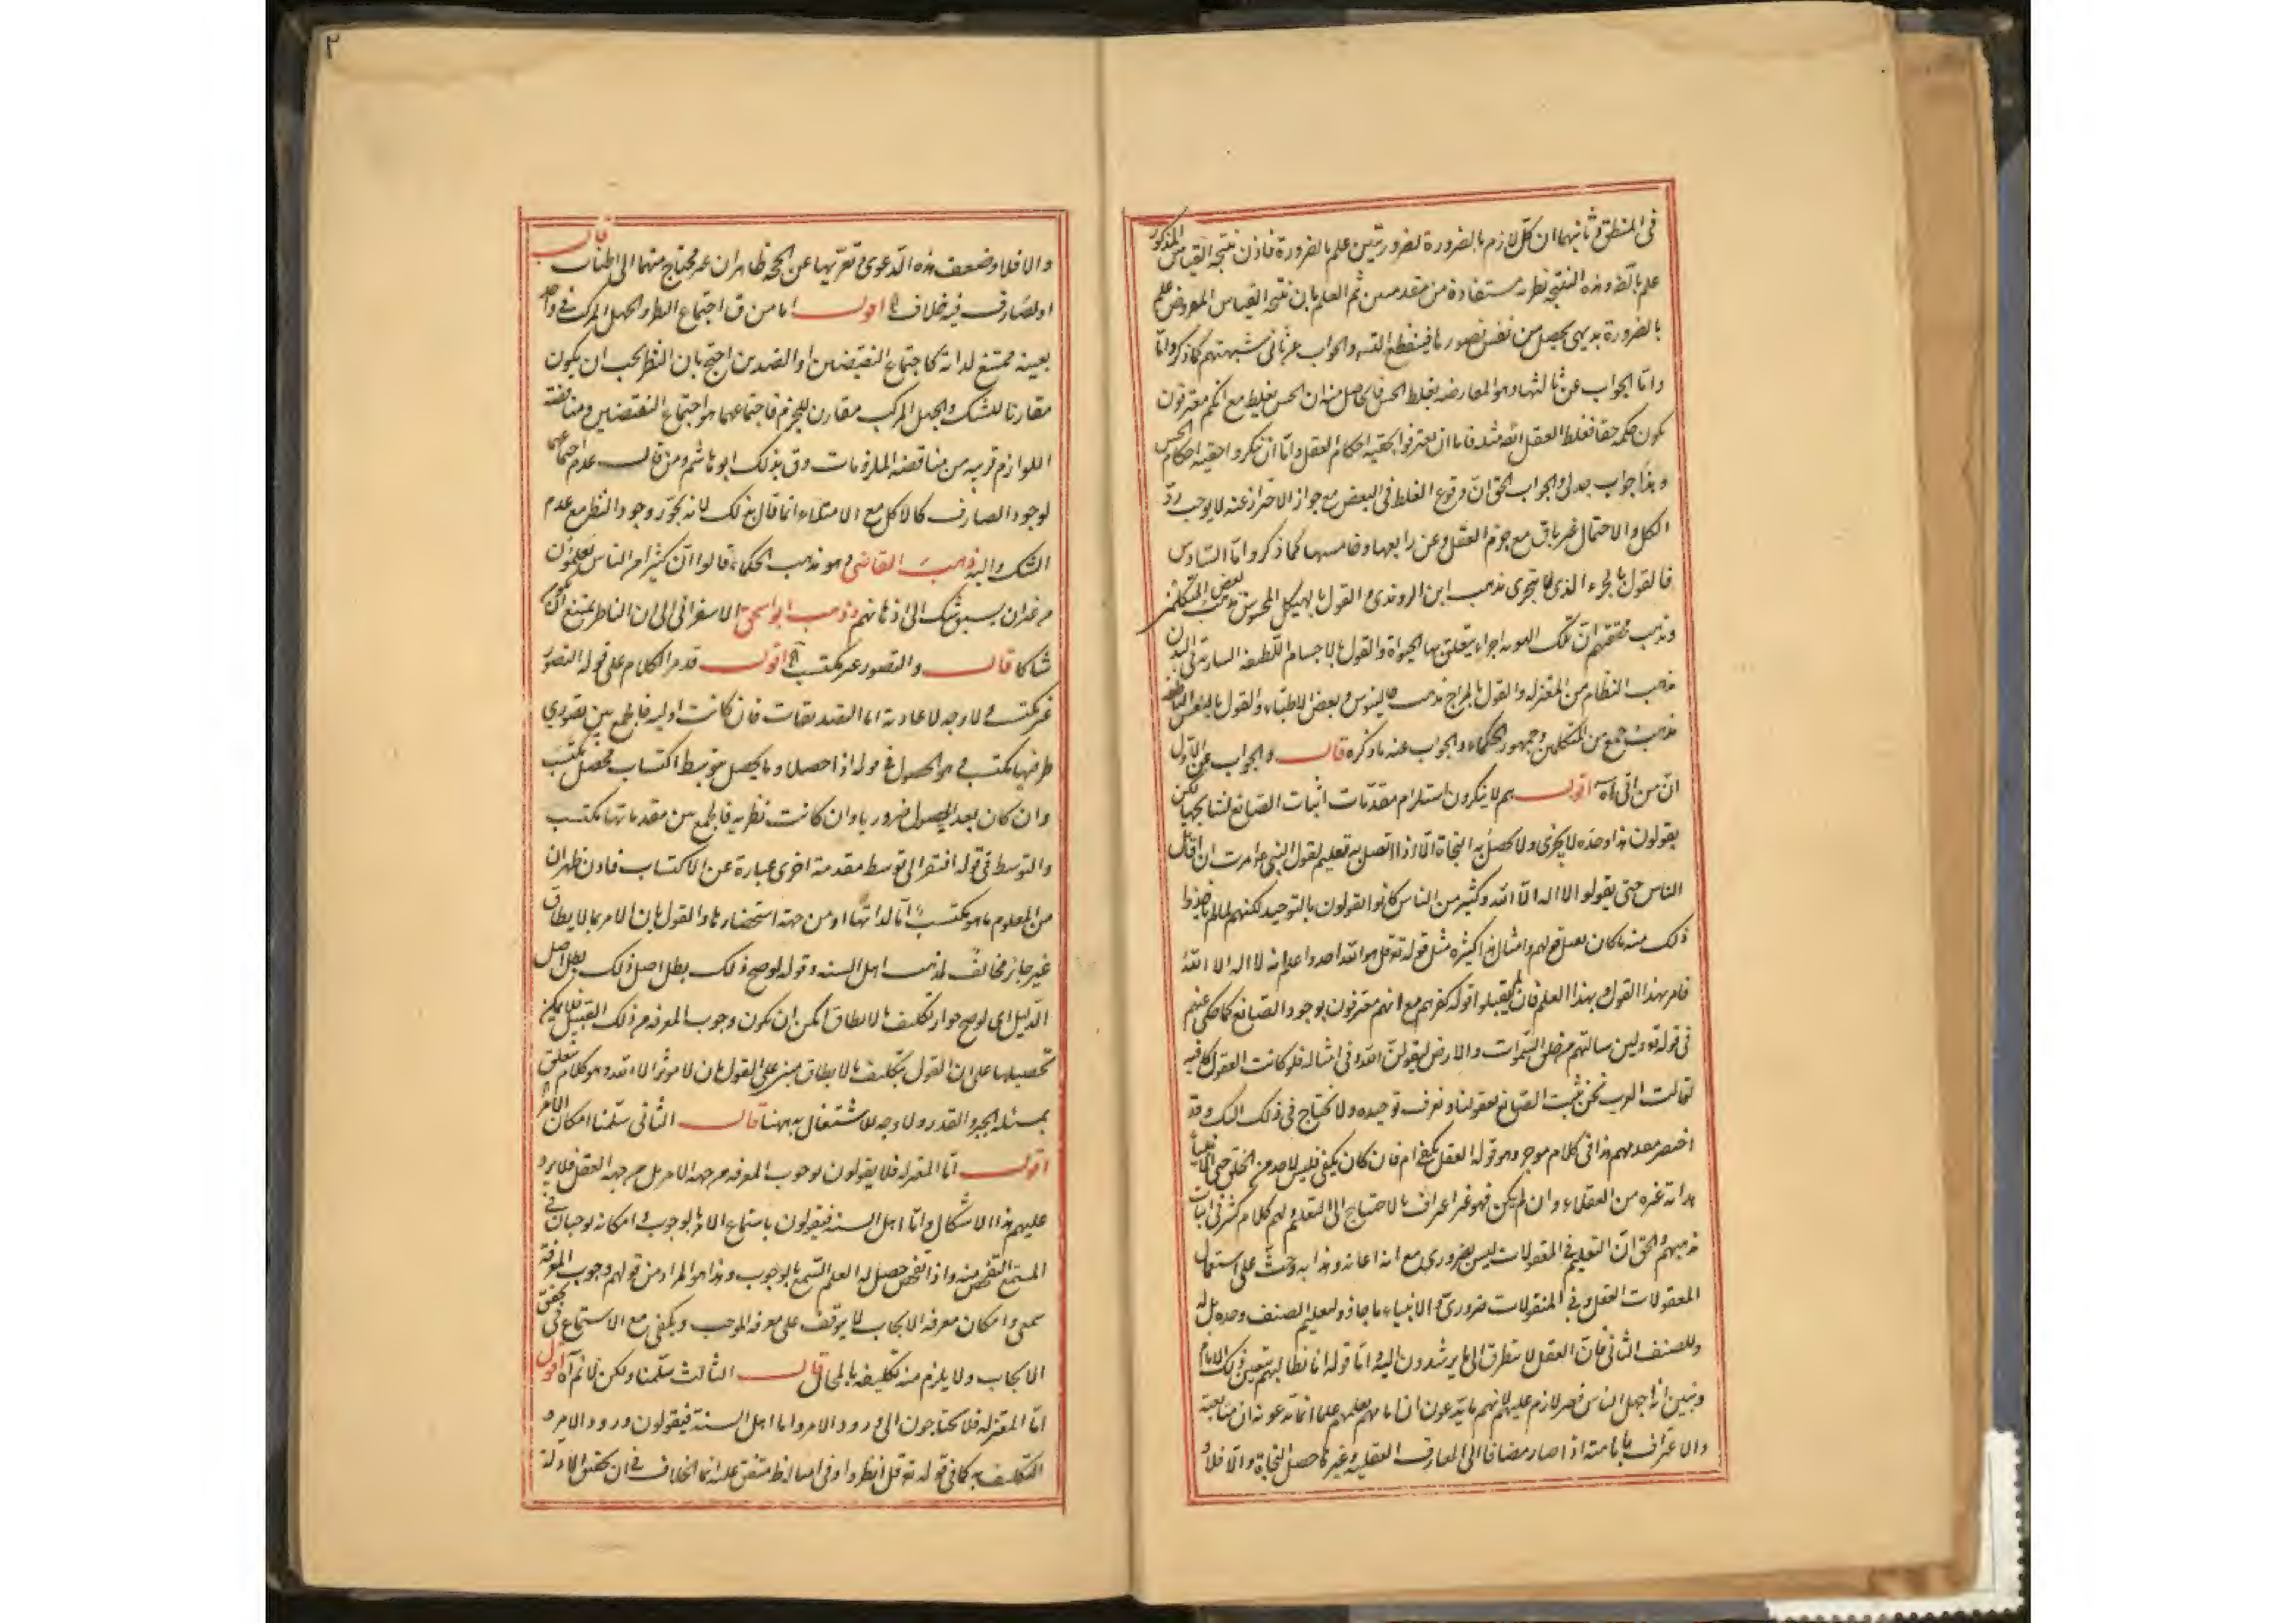 فى المنطق و ثانيهما ان كل لازم بالضرورة لضروريتين علم بالضرورة فاذن نتيجة القياس المذكور
علم بالضرورة هذه النتيجة نظرية مستفادة من مقدمتين ثم العلم بان نتيجة القياس المعروض علم
بالضرورة بديهى يحصل من نفس تصورها فينقطع التس والجواب عن ثانى شبهتهم كما ذكر واما
واما الجواب عن ثالثها وهو المعارضة بغلط الحس فالحاصل منه ان الحس يغلط مع انكم معترفون
بكون حكمه حقا فغلط العقل ايضا مثله فاما ان يعترفوا بحقية احكام العقل واما ان ينكروا حقية احكام الحس
وهذا جواب جدلى والجواب الحق ان وقوع الغلط فى البعض مع جواز الاحتراز عنه لا يوجب رد
الكل والاحتمال غير باق مع جزم العقل وعن رابعها وخامسها كما ذكر واما السادس
فالقول بالجزء الذى لا يتجزى مذهب ابن الروندى والقول بالهيكل المحسوس مذهب بعض المتكلمين
وذهب محققهم ان تلك الهوية اجزاء يتعلق بها الحيوة والقول بالاجسام اللطيفة السارية فى البدن
مذهب النظام من المعتزلة والقول بالمزاج مذهب جالينوس وبعض الاطباء والقول بالنفس الناطقة
مذهب جمع من المتكلمين وجمهور الحكماء والجواب عنه ما ذكره قال والجواب عن الاول
ان من اتى آه اقول هم لا ينكرون استلزام مقدمات اثبات الصانع لنتايجها لكن
يقولون هذا وحده لا يجزى ولا يحصل به النجاة الا اذا اتصل به تعليم لقول النبى ع امرت ان اقاتل
الناس حتى يقولوا لا اله الا الله وكثير من الناس كانوا يقولون بالتوحيد لكنهم لما لم ياخذوا
ذلك منه ما كان يقبل قولهم وامثال هذا كثيرة مثل قوله تع قل هو الله احد واعلم انه لا اله الا الله
فامر بهذا القول وبهذا العلم فان لم يقبلوا قوله كفرهم مع انهم معترفون بوجود الصانع كما حكى عنهم
فى قوله تع ولين سالتهم من خلق السموات والارض ليقولن الله وفى امثاله فلو كانت العقول كافية
لقالت العرب نحن نثبت الصانع بعقولنا ونعرف توحيده ولا نحتاج فى ذلك اليك وقد
اختصر مقدمهم هذا فى كلام موجز وهو قوله العقل يكفى ام فان كان يكفى فليس لاحد من الخلق حتى الانبياء
هداية غيره من العقلاء وان لم يكن فهو غير اعراف بالاحتياج الى التعليم ولهم كلام كثير فى اثبات
مذهبهم والحق ان التعليم فى المعقولات ليس بضرورى مع انه اعانة وهداية وحث على استعمال
المعقولات العقل وفى المنقولات ضرورى والانبياء ما جاؤا لتعليم الصنف وحده بل له
وللصنف الثانى فان العقل لا يتطرق الى ما يرشدون اليه واما قوله انا نطالبهم بتعيين ذلك الامام
ونبين انه اجهل الناس فغير لازم عليهم لانهم ما يدعون ان امامهم يعلمهم علما انما يدعون ان متابعته
والاعتراف بامامته اذا صار مضافا الى المعارف العقلية وغيرها حصل النجاة والا فلا و
٢
والا فلا وضعف هذه الدعوى و تعريها عن الحجة ظاهران غير محتاج منهما الى اطناب قال
او لصارف فيه خلاف اه اقول اما من ق اجتماع النظر والجهل المركب فى واحد
بعينه ممتنع لذاته كاجتماع النقيضين او الضدين احتج بان النظر يجب ان يكون
مقارنا للشك والجهل المركب مقارن للجزم فاجتماعهما هو اجتماع النقيضين ومناقضة
اللوازم قريبة من مناقضة الملزومات وق بذلك ابو هاشم ومن قال عدم اجتماعهما
لوجود الصارف كالاكل مع الامتلاء انما قال بذلك لانه يجوز وجود النظر مع عدم
الشك واليه ذهب القاضى وهو مذهب الحكماء قالوا ان كثيرا من الناس يتعلمون
من غير ان يسبق شك الى اذهانهم وذهب ابو اسحق الاسفراينى الى ان الناظر يمتنع ان يكون
شاكا قال والتصور غير مكتسب اه اقول قد مر الكلام على قوله التصور
غير مكتسب و لا وجه لاعادته اما التصديقات فان كانت اولية فالجمع بين تصورى
طرفيها مكتسب و هو الحصول فى قوله اذا حصلا وما يحصل بتوسط اكتساب محصل مكتسب
وان كان بعد الحصول ضروريا وان كانت نظرية فالجمع بين مقدماتها مكتسب
والتوسط فى قوله افتقر الى توسط مقدمة اخرى عبارة عن الاكتساب فاذن ظهر ان
من المعلوم ما هو مكتسب اما لذاتها او من جهة استحضارها والقول بان الامر بما لا يطاق
غير جائز مخالف لمذهب اهل السنة وقوله لو صح ذلك بطل اصل ذلك بطل اصل
الدليل اى لو صح جواز تكليف ما لا يطاق امكن ان يكون وجوب المعرفة من ذلك القبيل فلا يمكن
تحصيلها على ان القول بتكليف ما لا يطاق مبنى على القول بان لا موثر الا الله وهو كلام متعلق
بمسئلة الجبر والقدر ولا وجه للاشتغال به ههنا قال الثانى سلمنا امكان الامر
اقول اما المعتزلة فلا يقولون بوجوب المعرفة من جهة الامر بل من جهة العقل فلا يرد
عليهم هذا الاشكال واما اهل السنة فيقولون باستماع الامر بالوجوب و امكانه يوجبان فى
المستمع التفحص منه واذا تفحص حصل له العلم السمع بالوجوب وهذا هو المراد من قولهم وجوب المعرفة
سمعى وامكان معرفة الايجاب لا يتوقف على معرفة الموجب ويكفى مع الاستماع فى تحقق
الايجاب ولا يلزم منه تكليفه بالمحال قال الثالث سلمنا ولكن لا نم آه اقول
اما المعتزلة فلا يحتاجون الى ورود الامر واما اهل السنة فيقولون ورود الامر و
التكليف به كما فى قوله تع قل انظروا وفى امثاله متفق عليه انما الخلاف فى ان تحقق الادلة